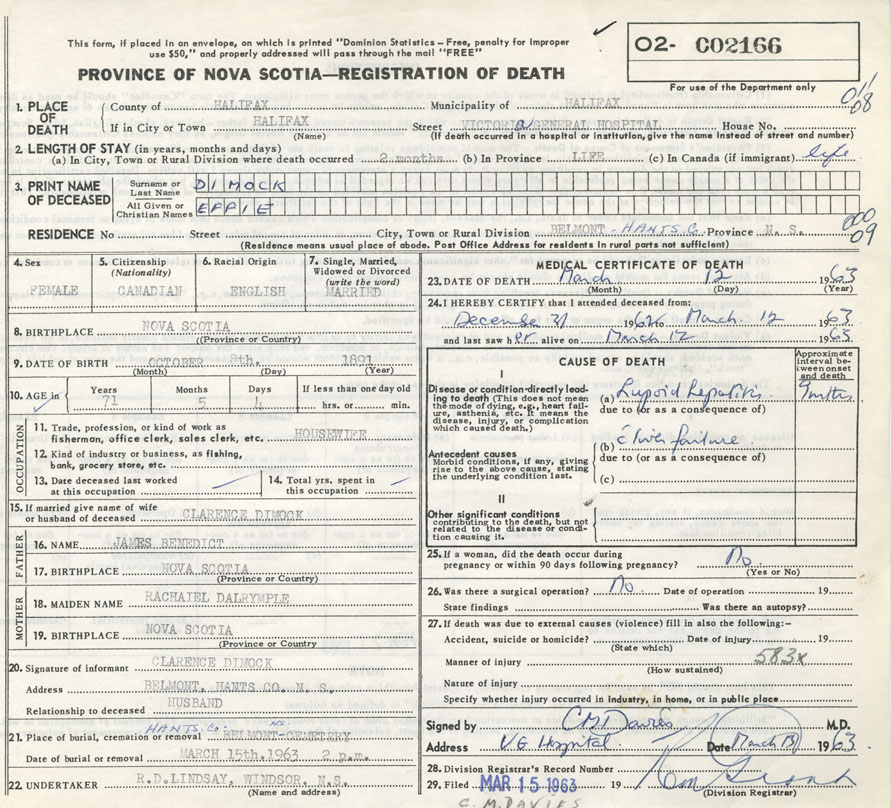 This form, if placed in an envelope, on which is printed "Dominion Statistics – Free, penalty for improper
use $50," and properly addressed will pass through the mail "FREE"
O2- C02166
PROVINCE OF NOVA SCOTIA—REGISTRATION OF DEATH
For use of the Department only
1. PLACE OF DEATH
County of HALIFAX Municipality of HALIFAX
If in City or Town HALIFAX Street VICTORIA GENERAL HOSPITAL House No.
(Name) (If death occurred in hospital or institution, give the name instead of street and number)
2. LENGTH OF STAY (in years, months and days)
(a) In City, Town or Rural Division where death occurred 2 months (b) In Province LIFE (c) In Canada (if immigrant) life
3. PRINT NAME OF DECEASED
Surname or Last Name DIMOCK
All Given or Christian Names EFFIE
RESIDENCE No Street City, Town or Rural Division BELMONT - HANTS Co. Province N. S.
09
(Residence means usual place of abode. Post Office Address for residents in rural parts not sufficient)
4. Sex FEMALE
5. Citizenship (Nationality) CANADIAN
6. Racial Origin ENGLISH
7. Single, Married, Widowed or Divorced (write the word) MARRIED
8. BIRTHPLACE NOVA SCOTIA
(Province or Country)
9. DATE OF BIRTH OCTOBER 8th. 1891
(Month) (Day) (Year)
10. AGE in Years 71 Months 5 Days 4 If less than one day old hrs. or min.
OCCUPATION
11. Trade, profession, or kind of work as
fisherman, office clerk, sales clerk, etc. HOUSEWIFE
12. Kind of industry or business, as fishing,
bank, grocery store, etc.
13. Date deceased last worked at this occupation
14. Total yrs. spent in this occupation
15. If married give name of wife
or husband of deceased CLARENCE DIMOCK
FATHER
16. NAME JAMES BENEDICT
17. BIRTHPLACE NOVA SCOTIA
(Province or Country)
MOTHER
18. MAIDEN NAME RACHAIEL DALRYMPLE
19. BIRTHPLACE NOVA SCOTIA
(Province or Country
20. Signature of informant CLARENCE DIMOCK
Address BELMONT, HANTS CO. N. S.
Relationship to deceased HUSBAND
HANTS. Co. NS.
21. Place of burial, cremation or removal BELMONT-CEMETERY
Date of burial or removal MARCH 15th.1963 2 p.m.
22. UNDERTAKER R.D.LINDSAY, WINDSOR, N.S.
(Name and address)
MEDICAL CERTIFICATE OF DEATH
23. DATE OF DEATH March 12 1963
(Month) (Day) (Year)
24. I HEREBY CERTIFY that I attended deceased from:
December 31 1962 to March 12 1963
and last saw her alive on March 12 1963
CAUSE OF DEATH
Approximate interval between onset and death
I
Disease or condition directly leading to death (This does not mean the mode of dying, e.g., heart failure, asthenia, etc. It means the disease, injury, or complication which caused death.)
(a) Lupoid hepatitis. 9 mths
due to (or as a consequence of)
(b) c̄ liver failure.
due to (or as a consequence of)
(c)
Antecedent causes
Morbid conditions, if any, giving rise to the above cause, stating the underlying condition last.
II
Other significant conditions
contributing to the death, but not related to the disease or condition causing it.
25. If a woman, did the death occur during
pregnancy or within 90 days following pregnancy? No.
(Yes or No)
26. Was there a surgical operation? No. Date of operation 19
State findings Was there an autopsy?
27. If death was due to external causes (violence) fill in also the following:-
Accident, suicide or homicide? Date of injury 19
(State which)
Manner of injury 583x
(How sustained)
Nature of injury
Specify whether injury occurred in industry, in home, or in public place
Signed by CM Davies M.D.
Address V.G. Hospital. Date March 13 1963
28. Division Registrar's Record Number
29. Filed MAR 15 1963 19
(Division Registrar)
C. M. DAVIES